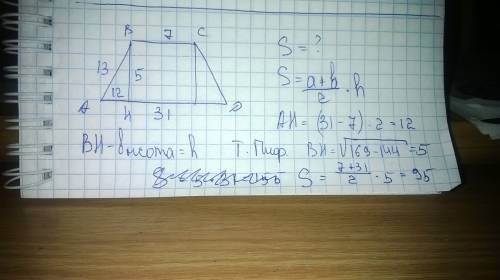 B 7 C
13 5
A 12 D
H 31
S = ?
S = a+b/2 · h
AH = (31 - 7) · 2 = 12
BH - высота = h
Т. Пиф. BH = √169-144 = 5
S = 7+31/2 · 5 = 95